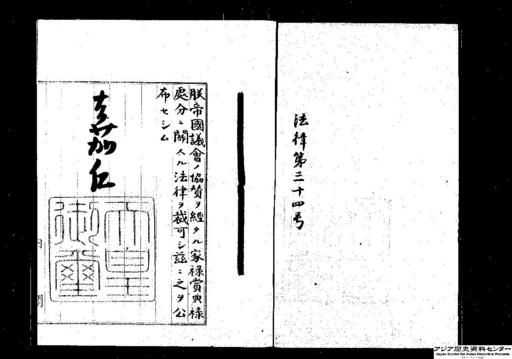 法律第三十四号
朕帝國議會ノ協賛ヲ經タル家祿賞典祿
處分ニ關スル法律ヲ裁可シ茲ニ之ヲ公
布セシム
嘉仁
天皇
御璽
内閣
アジア歴史資料センター
Japan Center for Asian Historical Records